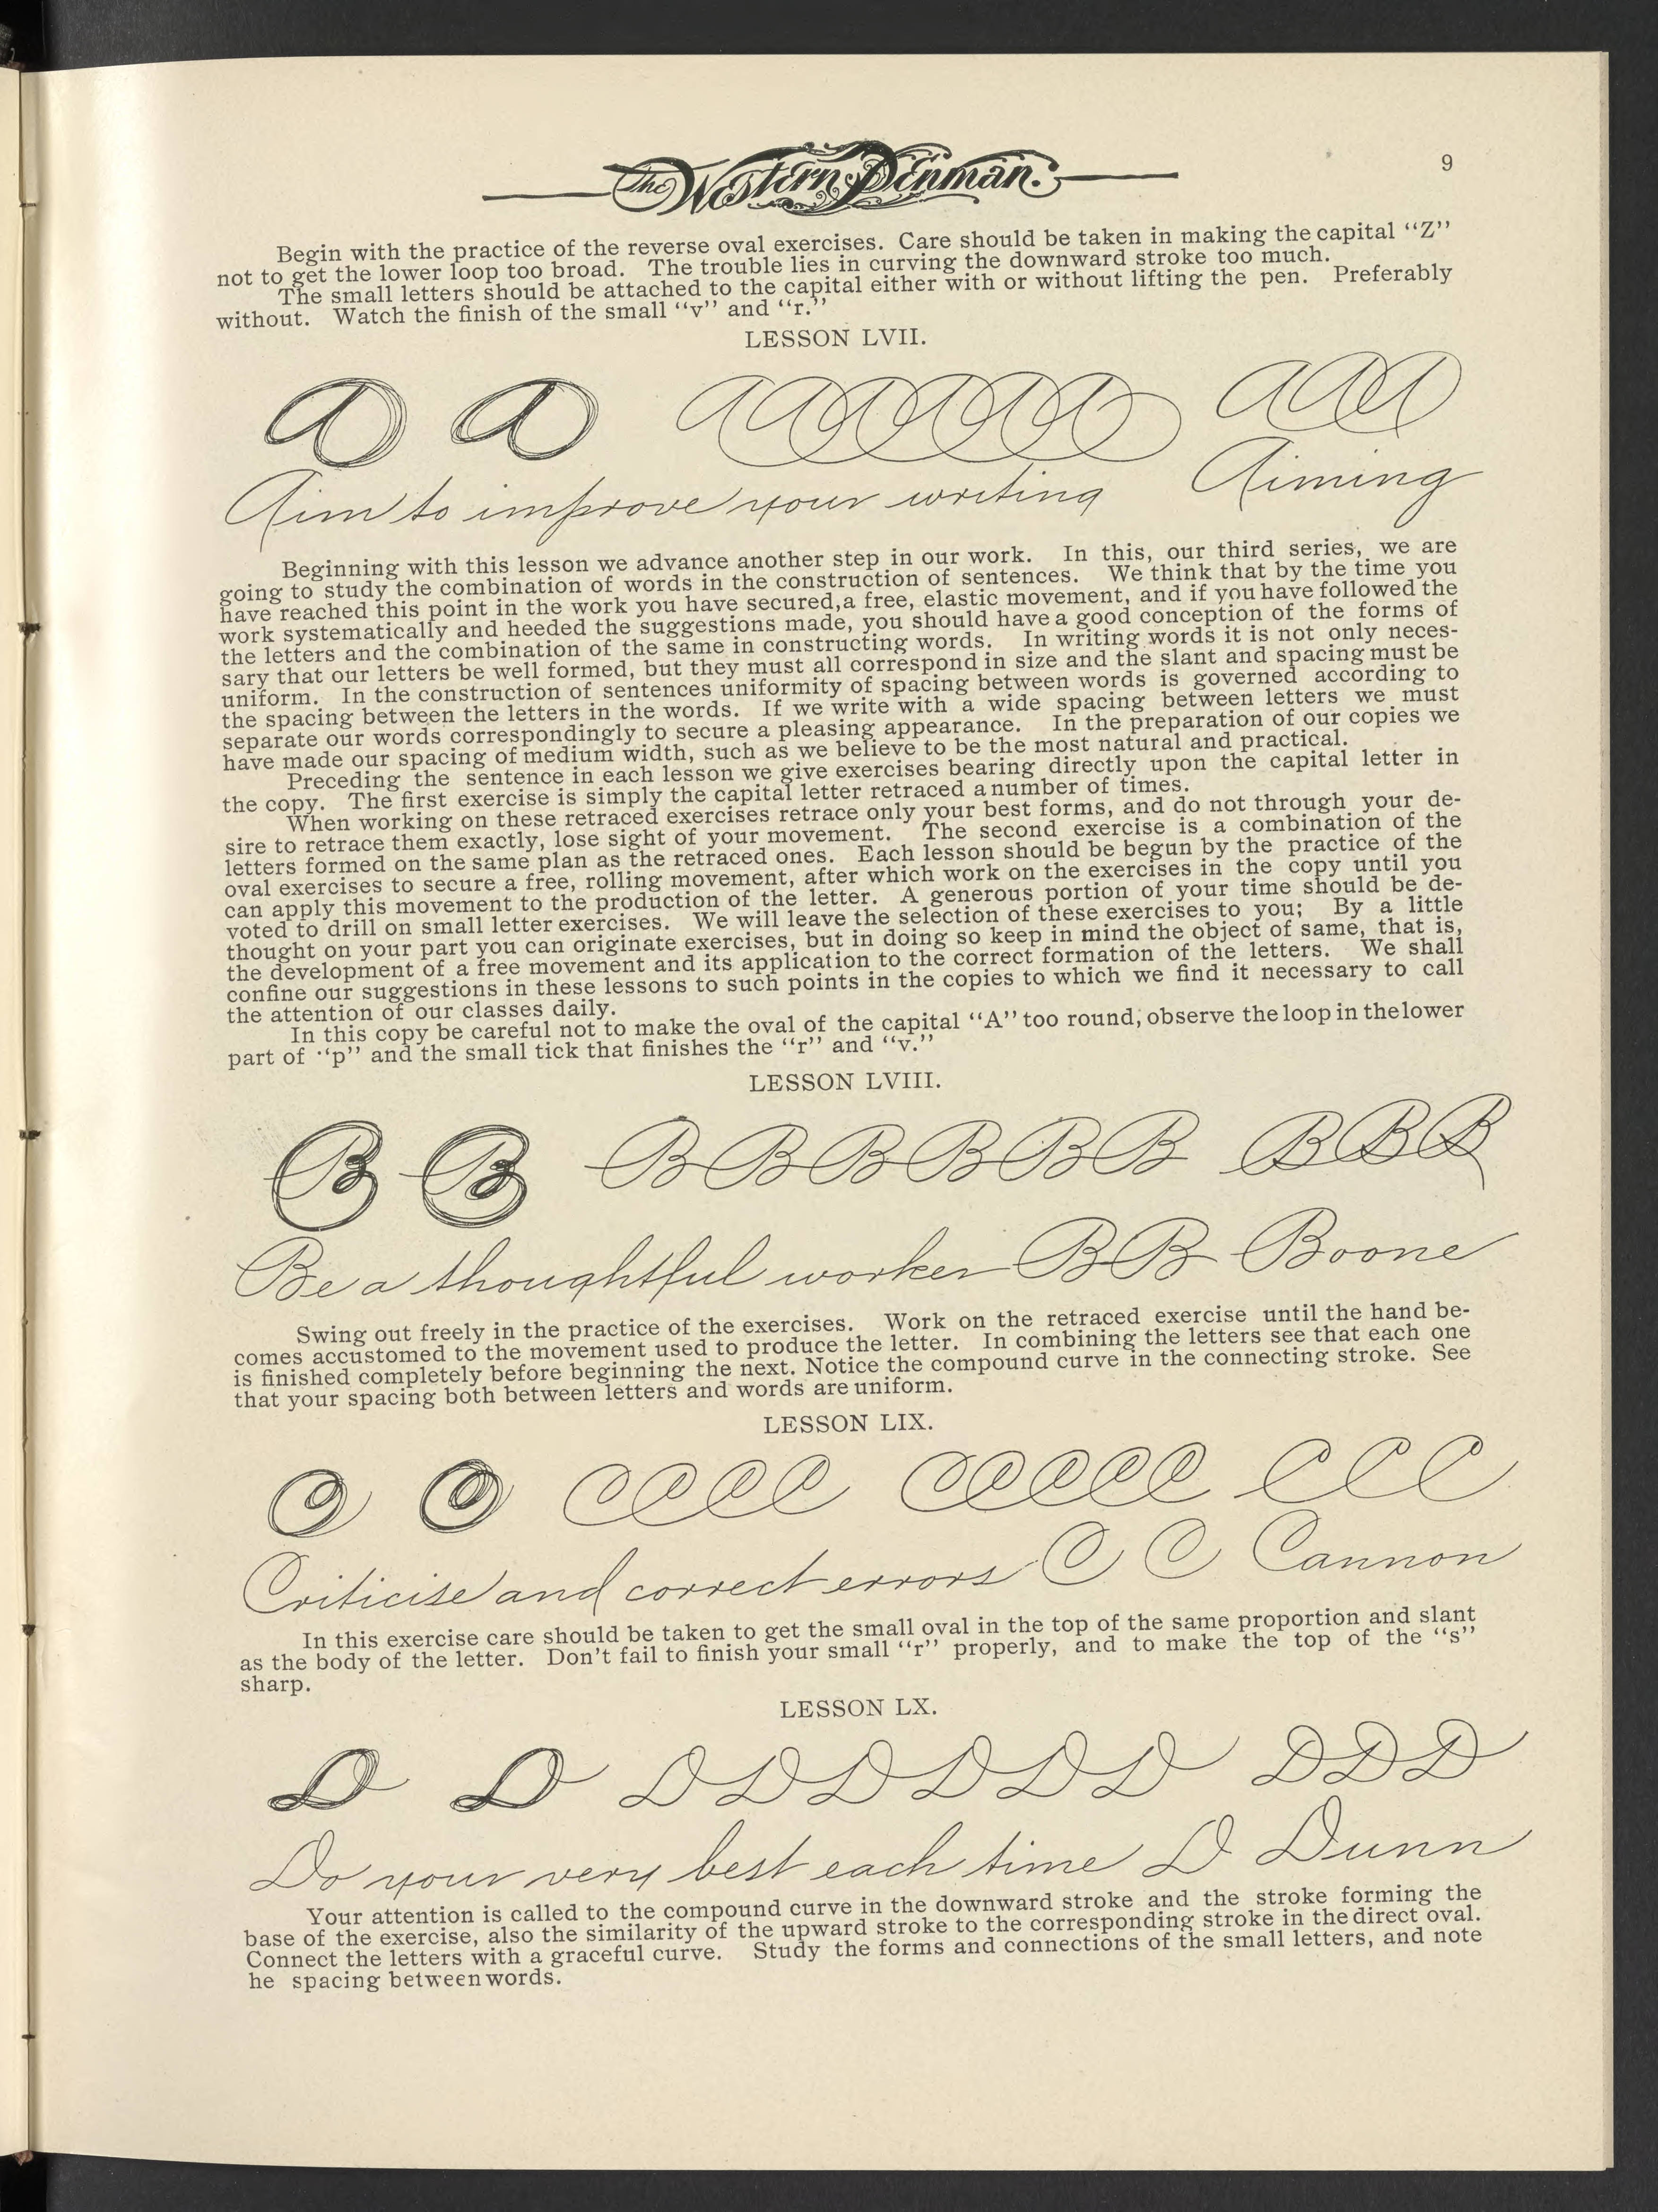 The Western Penman.
9
Begin with the practice of the reverse oval exercises. Care should be taken in making the capital “Z”
not to get the lower loop too broad. The trouble lies in curving the downward stroke too much.
The small letters should be attached to the capital either with or without lifting the pen. Preferably
without. Watch the finish of the small “v” and “r.”
LESSON LVII.
A A AAAAAAA AAAA
Aim to improve your writing Aiming
Beginning with this lesson we advance another step in our work. In this, our third series, we are
going to study the combination of words in the construction of sentences. We think that by the time you
have reached this point in the work you have secured,a free, elastic movement, and if you have followed the
work systematically and heeded the suggestions made, you should have a good conception of the forms of
the letters and the combination of the same in constructing words. In writing words it is not only neces-
sary that our letters be well formed, but they must all correspond in size and the slant and spacing must be
uniform. In the construction of sentences uniformity of spacing between words is governed according to
the spacing between the letters in the words. If we write with a wide spacing between letters we must
separate our words correspondingly to secure a pleasing appearance. In the preparation of our copies we
have made our spacing of medium width, such as we believe to be the most natural and practical.
Preceding the sentence in each lesson we give exercises bearing directly upon the capital letter in
the copy. The first exercise is simply the capital letter retraced a number of times.
When working on these retraced exercises retrace only your best forms, and do not through your de-
sire to retrace them exactly, lose sight of your movement. The second exercise is a combination of the
letters formed on the same plan as the retraced ones. Each lesson should be begun by the practice of the
oval exercises to secure a free, rolling movement, after which work on the exercises in the copy until you
can apply this movement to the production of the letter. A generous portion of your time should be de-
voted to drill on small letter exercises. We will leave the selection of these exercises to you; By a little
thought on your part you can originate exercises, but in doing so keep in mind the object of same, that is,
the development of a free movement and its application to the correct formation of the letters. We shall
confine our suggestions in these lessons to such points in the copies to which we find it necessary to call
the attention of our classes daily.
In this copy be careful not to make the oval of the capital “A” too round, observe the loop in the lower
part of “p” and the small tick that finishes the “r” and “v.”
LESSON LVIII.
B B BBBBBB BBB
Be a thoughtful worker BB Boone
Swing out freely in the practice of the exercises. Work on the retraced exercise until the hand be-
comes accustomed to the movement used to produce the letter. In combining the letters see that each one
is finished completely before beginning the next. Notice the compound curve in the connecting stroke. See
that your spacing both between letters and words are uniform.
LESSON LIX.
C C CCCC CCCCC CCC
Criticise and correct errors C C Cannon
In this exercise care should be taken to get the small oval in the top of the same proportion and slant
as the body of the letter. Don't fail to finish your small “r” properly, and to make the top of the “s”
sharp.
LESSON LX.
D D DDDDDD DDD
Do your very best each time D Dunn
Your attention is called to the compound curve in the downward stroke and the stroke forming the
base of the exercise, also the similarity of the upward stroke to the corresponding stroke in the direct oval.
Connect the letters with a graceful curve. Study the forms and connections of the small letters, and note
he spacing between words.